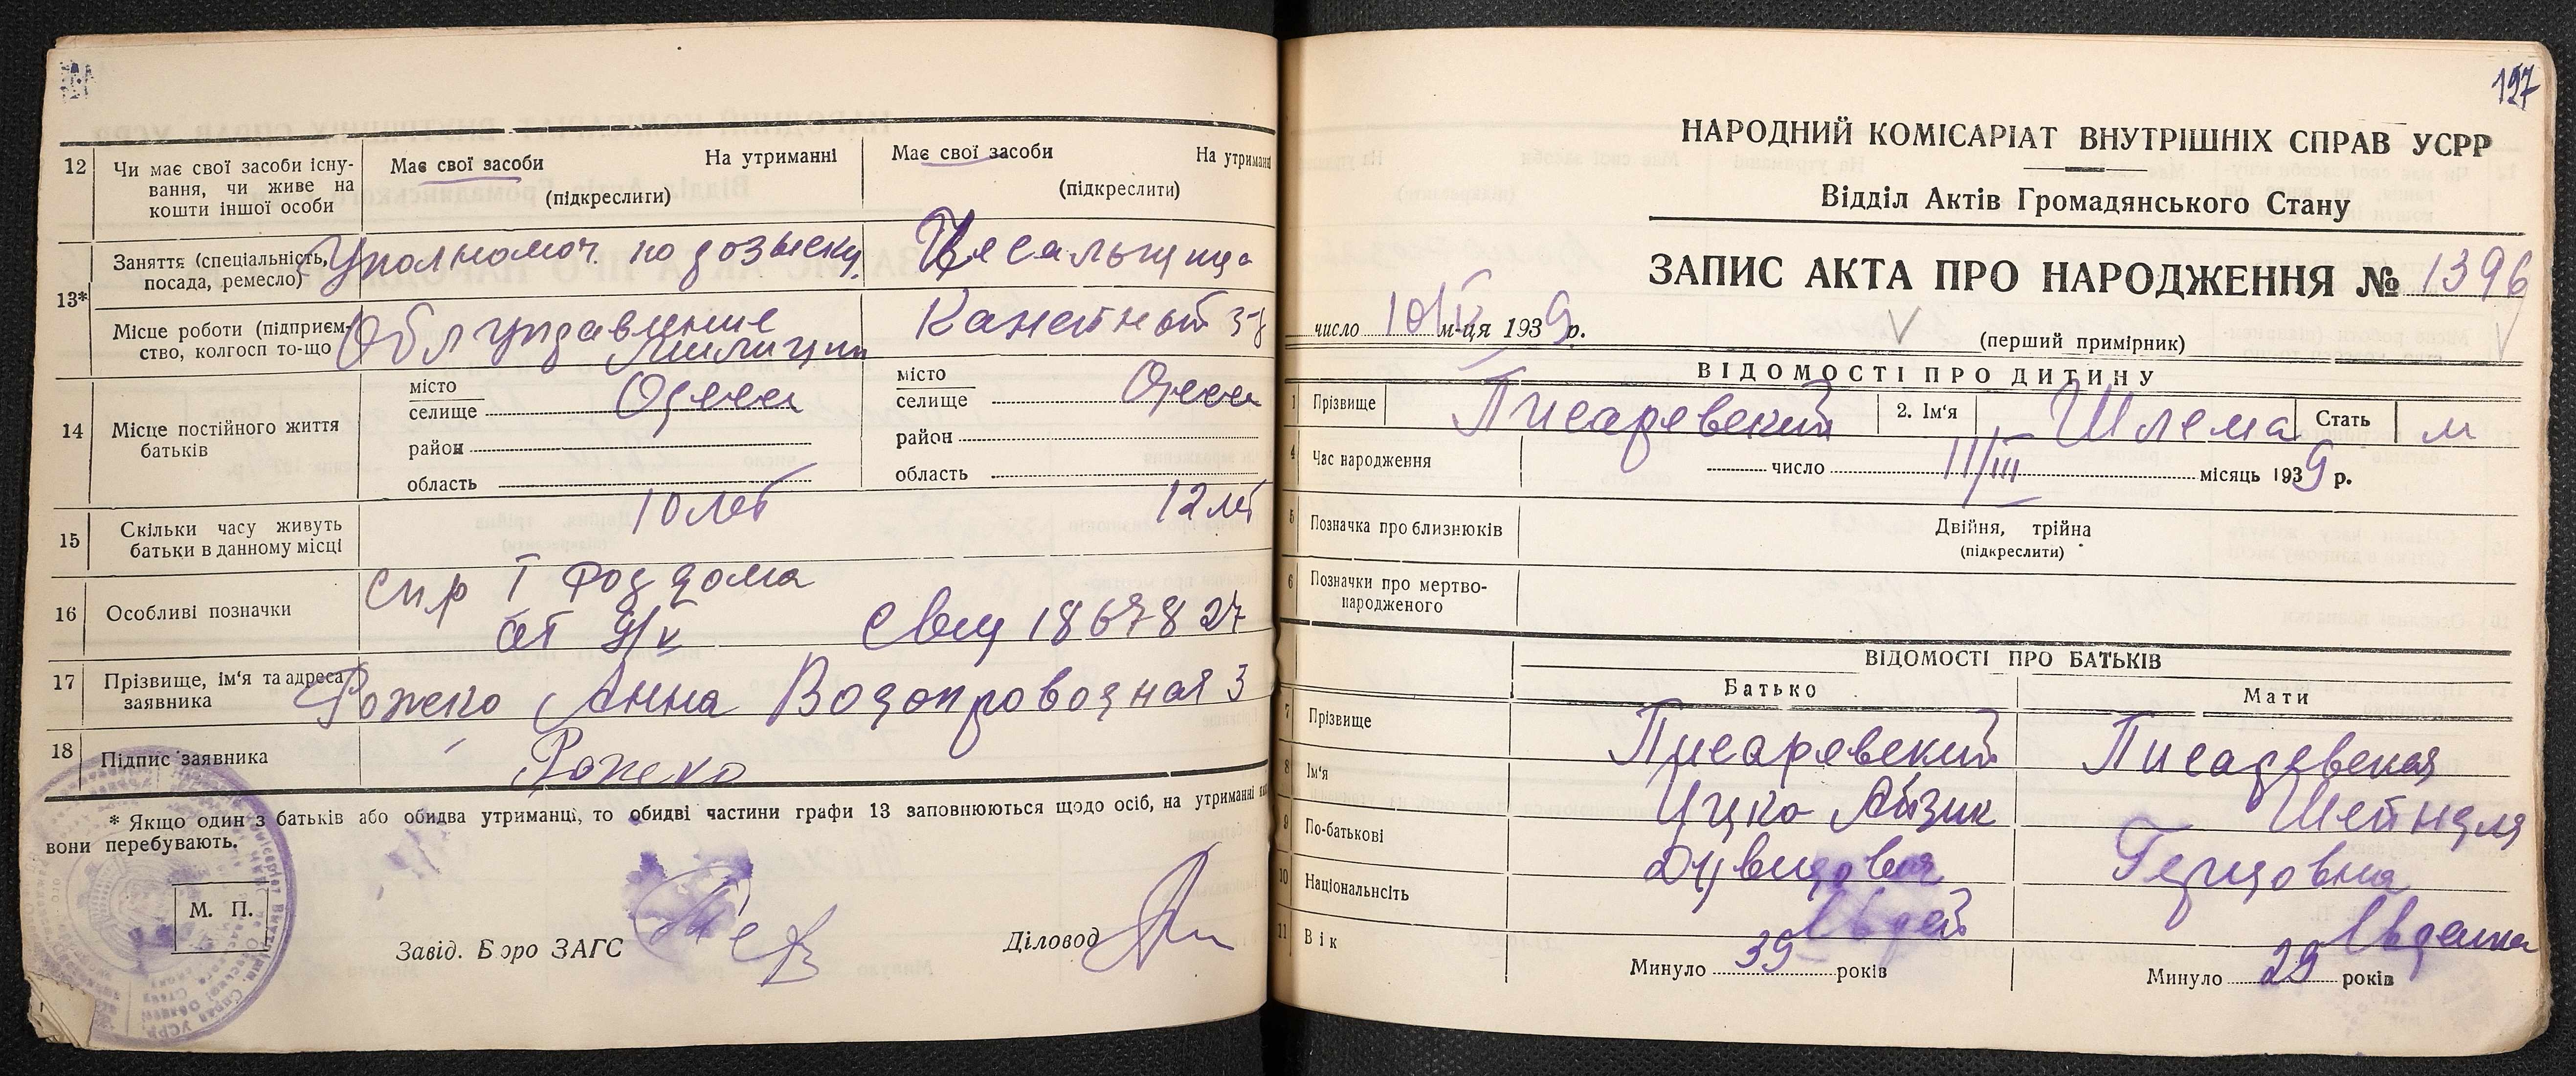 12
Чи має свої засоби існу-
вання, чи живе на
кошти іншої особи
Має свої засоби На утриманні
(підкреслити)
Має свої засоби На утриманні
(підкреслити)
13*
Заняття (спеціальність,
посада, ремесло)
Уполномоч. по розыску
Чесальщица
Місце роботи (підприєм-
ство, колгосп то-що
Обл управление
Милиции
Канатный
14
Місце постійного життя
батьків
місто
селище Одесса
район
область
місто
селище Одесса
район
область
15
Скільки часу живуть
батьки в данному місці
10 лет
12 лет
16
Особливі позначки
Спр I Род дома
от 9/V Свид 18678 27
17
Прізвище, ім'я та адреса
заявника
Рожко Анна Водопроводная 3
18
Підпис заявника
Рожко
* Якщо один з батьків або обидва утриманці, то обидві частини графи 13 заповнюються щодо осіб, на утриманні
вони перебувають.
М. П.
Завід. Бюро ЗАГС
Діловод
197
НАРОДНИЙ КОМІСАРІАТ ВНУТРІШНІХ СПРАВ УСРР
Відділ Актів Громадянського Стану
ЗАПИС АКТА ПРО НАРОДЖЕННЯ № 1396
число 10/V м-ця 1939 р.
(перший примірник)
ВІДОМОСТІ ПРО ДИТИНУ
1 Прізвище Писаревский 2. Ім'я Шлема Стать м
4 Час народження число 11/III місяць 1939 р.
5 Позначка про близнюків Двійня, трійна
(підкреслити)
6 Позначки про мертво-
народженого
ВІДОМОСТІ ПРО БАТЬКІВ
Батько Мати
7 Прізвище Писаревский Писаревская
8 Ім'я Ицко Айзик Шейндля
9 По-батькові Дувидович Герцовна
10 Національність Еврей Еврейка
11 Вік Минуло 39 років Минуло 29 років